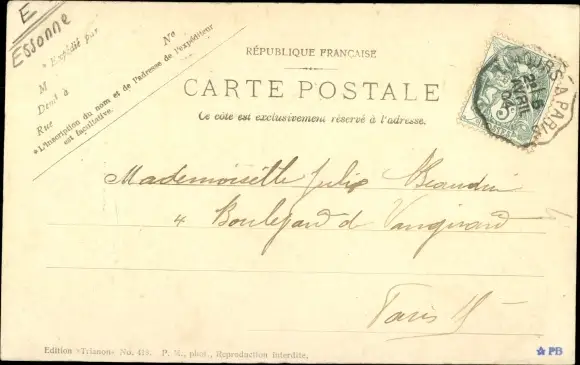 E
Essonne
* Expédié par
M
Demt à
Rue
Nº
*L'inscription du nom et de l'adresse de l'expéditeur
est facultative.
RÉPUBLIQUE FRANÇAISE
CARTE POSTALE
Ce côté est exclusivement réservé à l'adresse.
TOURS A PARIS
AVRIL
04
Mademoiselle Julie Beaudin
4 Boulevard de Vaugirard
Paris 15
Edition «Trianon» No. 418. P. M., phot., Reproduction Interdite.
PB